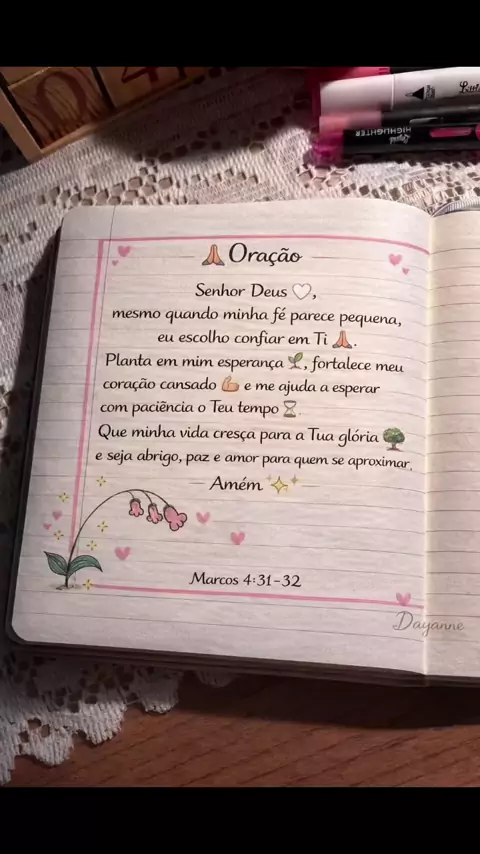 🙏Oração
Senhor Deus 🤍,
mesmo quando minha fé parece pequena,
eu escolho confiar em Ti 🙏.
Planta em mim esperança 🌱, fortalece meu
coração cansado 💪 e me ajuda a esperar
com paciência o Teu tempo ⏳.
Que minha vida cresça para a Tua glória 🌳
e seja abrigo, paz e amor para quem se aproximar.
Amém ✨
Marcos 4:31-32
Dayanne
HIGHLIGHTER